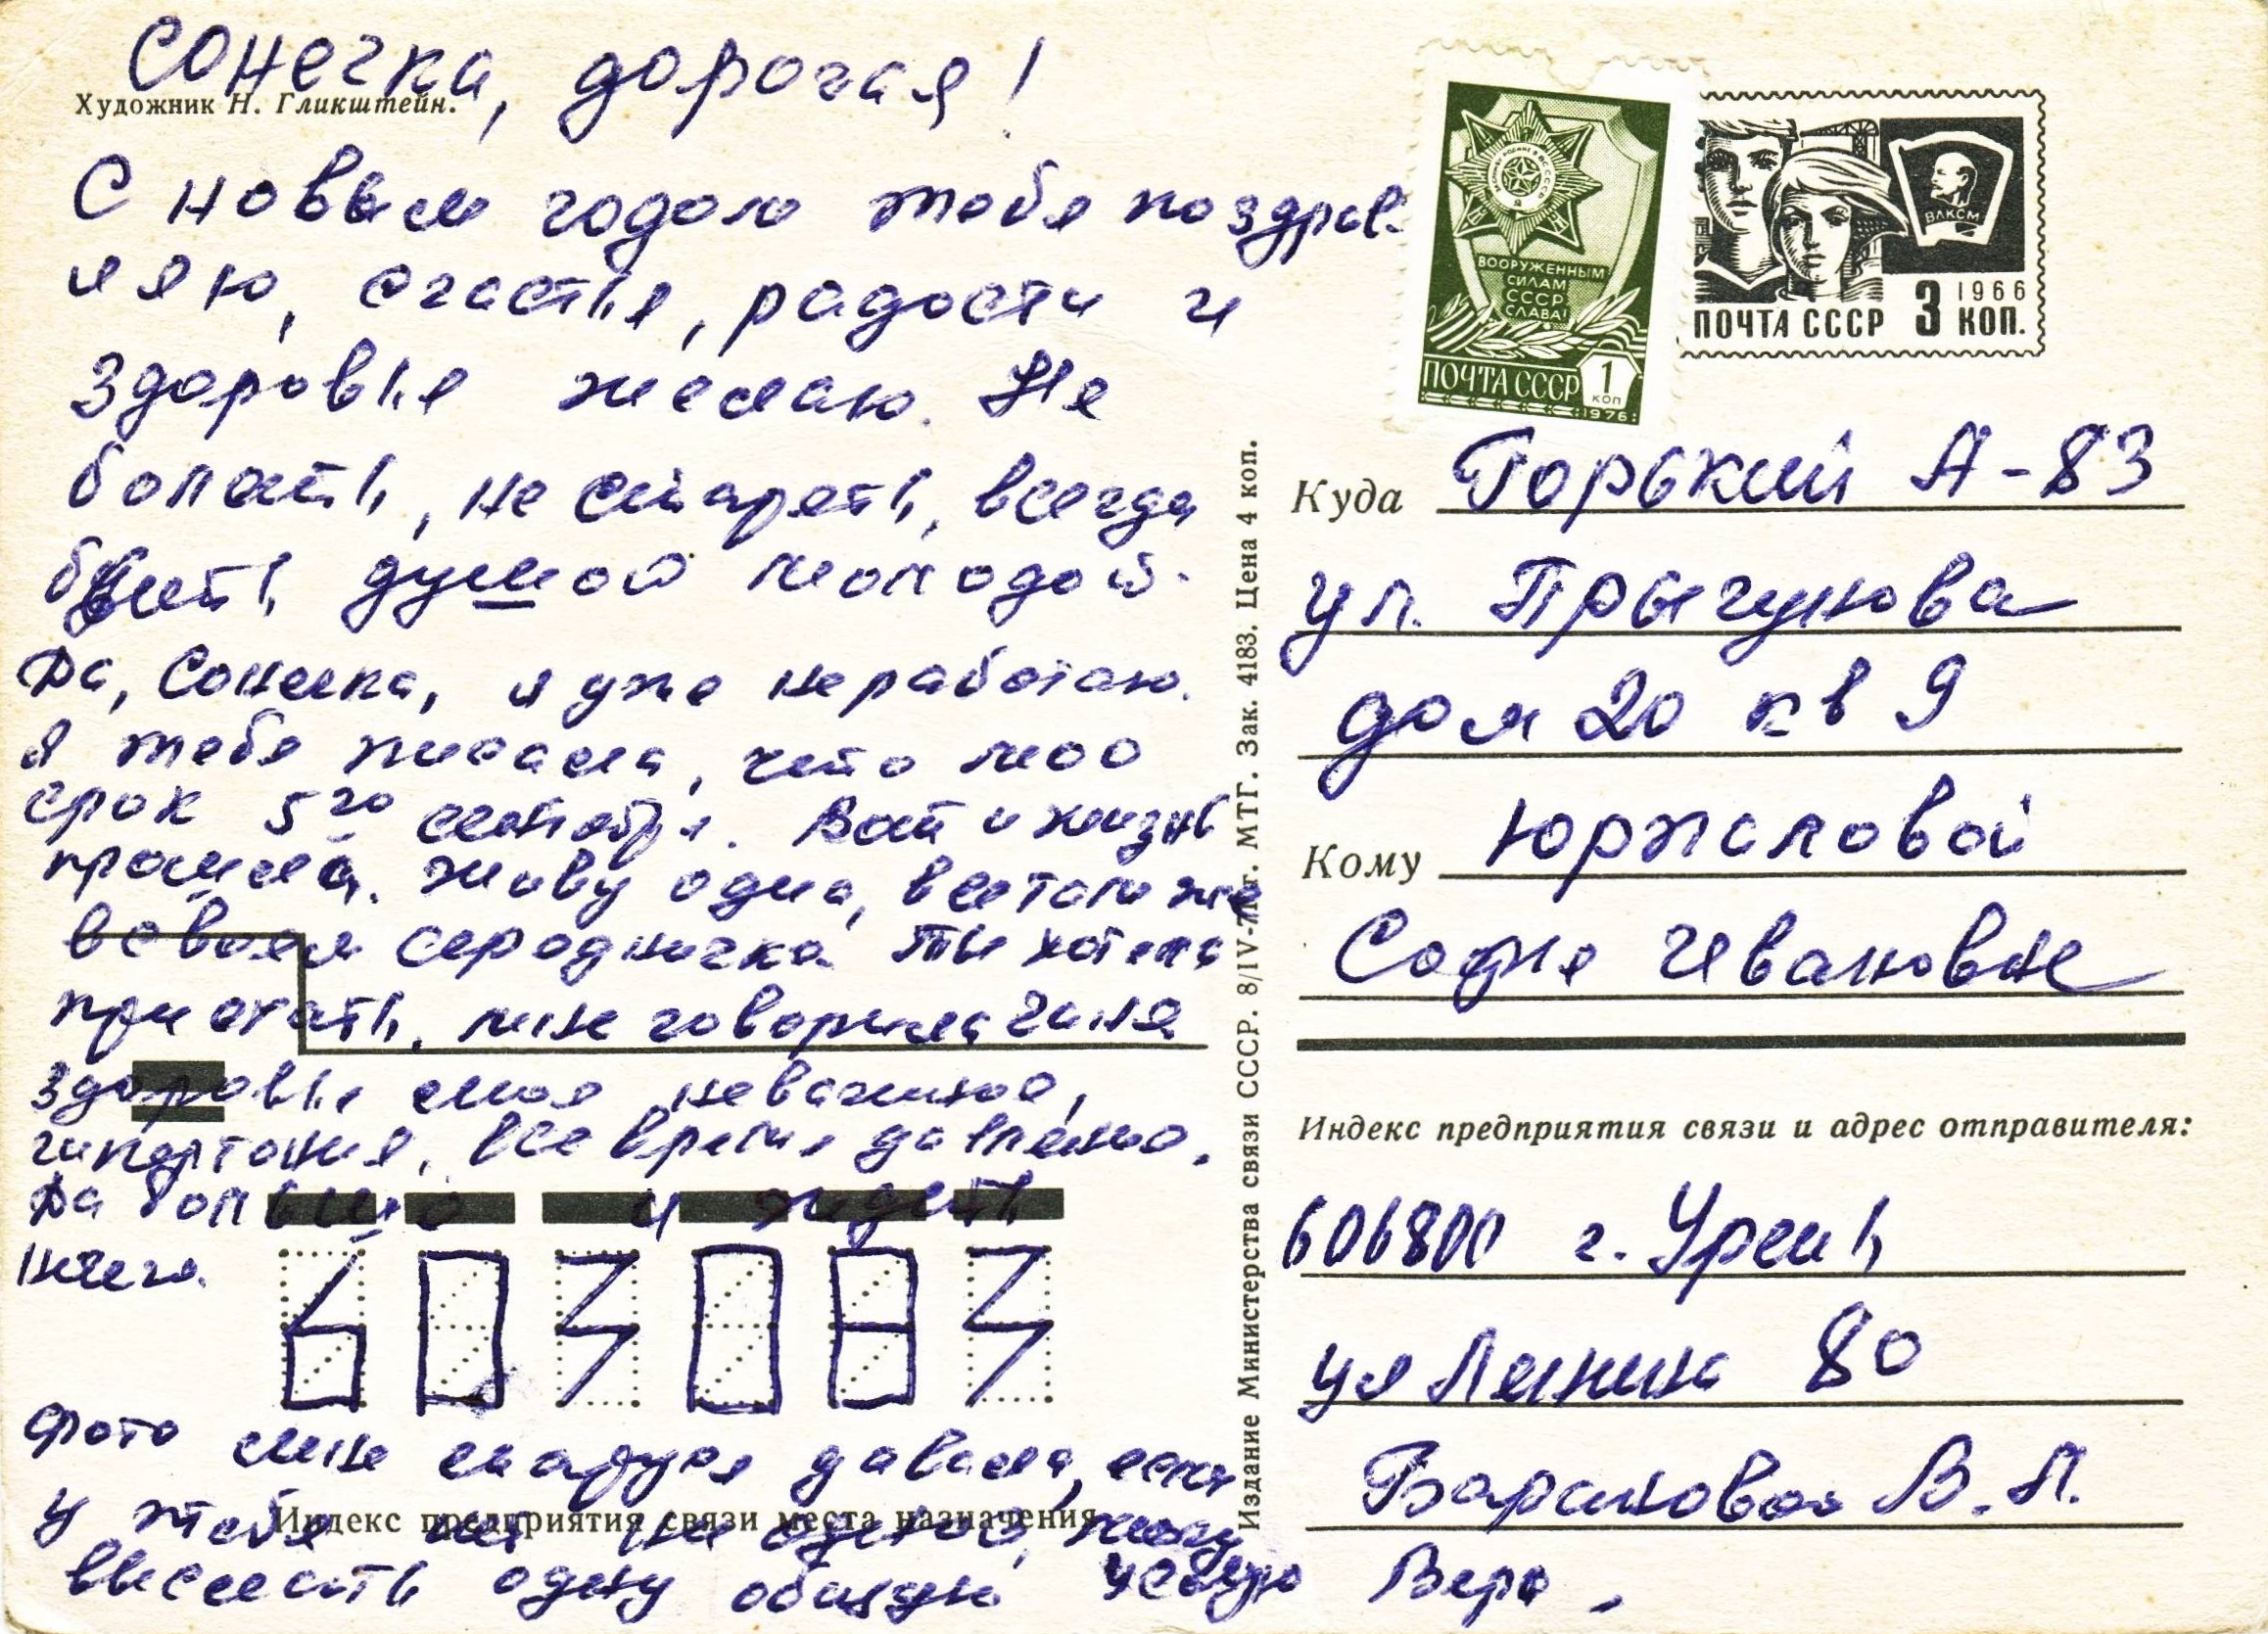 Сонечка, дорогая!
Художник Н. Гликштейн.
С новым годом тебя поздрав-
ляю, счастья, радости и
здоровья желаю. Не
болеть, не стареть, всегда
быть душой молодой.
Да, Сонечка, я уже не работаю.
Я тебе писала, что мой
срок 5го сентября. Вот и жизнь
прошла. Живу одна, все там же
в своей серединочке. Ты хотела
приехать, мне говорила Галя
Здоровье мое неважное,
гипертония, все время давление.
Да больше и ждать
нечего.
603083
Фото мне Маруся давала, если
у тебя нет ни одной, могу
Индекс предприятия связи места назначения
выслать одну общую Целую Вера.
Издание Министерства связи СССР. 8/IV-77г. МТГ. Зак. 4183. Цена 4 коп.
ВООРУЖЕННЫМ
СИЛАМ
СССР
СЛАВА!
ПОЧТА СССР 1
КОП
1976
ВЛКСМ
1966
ПОЧТА СССР 3 КОП.
Куда Горький А-83
ул. Прыгунова
дом 20 кв 9
Кому Юрасловой
Софье Ивановне
Индекс предприятия связи и адрес отправителя:
606800 г. Урень
ул Ленина 80
Барановой В. П.